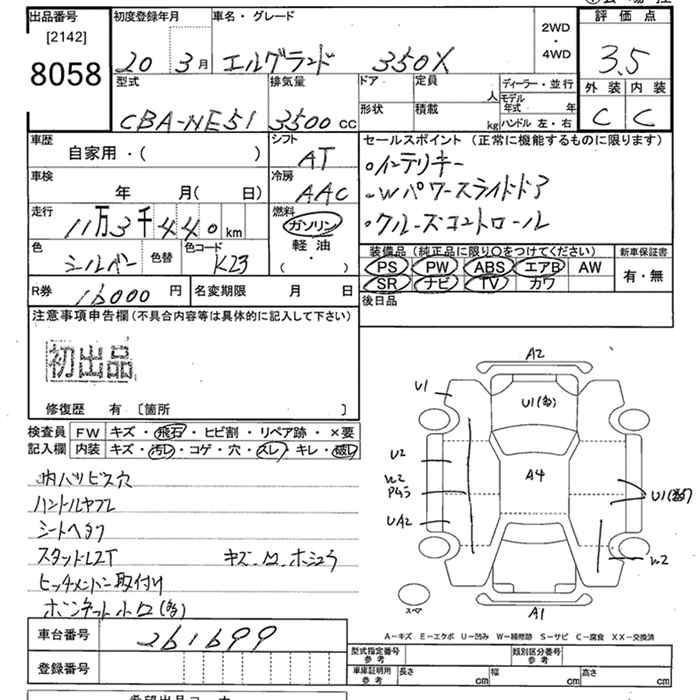 出品番号
[2142]
8058
初度登録年月
20 3月
車名・グレード
エルグランド 350X
2WD
・
4WD
評価点
3.5
外装 内装
C C
型式
CBA-NE51
排気量
3500 cc
ドア
定員 人
形状
積載 kg
ディーラー・並行
モデル年式 年
ハンドル 左・右
車歴
自家用・( )
シフト
AT
車検
年 月( 日)
冷房
AAC
走行
11万3千440km
燃料
ガソリン
軽油
( ・ )
色
シルバー
色替
色コード
K23
R券 16000円
名変期限 月 日
セールスポイント (正常に機能するものに限ります)
・インテリキー
・Wパワースライドドア
・クルーズコントロール
装備品 (純正品に限り○をつけてください)
PS PW ABS エアB AW
SR ナビ TV カワ
新車保証書
有・無
後日品
注意事項申告欄(不具合内容等は具体的に記入して下さい)
初出品
修復歴 有 〔箇所 〕
検査員記入欄
FW キズ・飛石・ヒビ割・リペア跡・×要
内装 キズ・汚レ・コゲ・穴・スレ・キレ・破レ
内ハリビス穴
ハンドルヤブレ
シートヘタリ
キズ・凹 ホシュウ
ヒッチメンバー取付け
ボンネット小凹(多)
車台番号 261699
登録番号
A2
U1
U1(多)
U2
W2
A4
UA2
W2
A1
スペア
A−キズ E−エクボ U−凹み W−補修跡 S−サビ C−腐食 XX−交換済
型式指定番号
参考
類別区分番号
参考
車庫証明用
参考
長さ cm
幅 cm
高さ cm